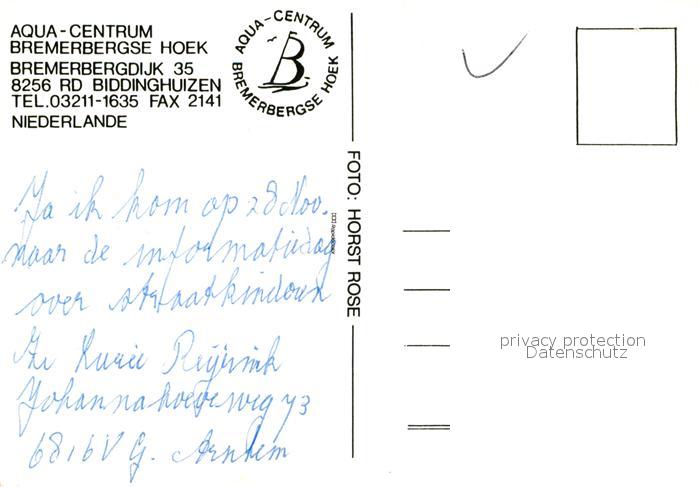 AQUA-CENTRUM
BREMERBERGSE HOEK
BREMERBERGDIJK 35
8256 RD BIDDINGHUIZEN
TEL.03211-1635 FAX 2141
NIEDERLANDE
AQUA-CENTRUM
B
BREMERBERGSE HOEK
FOTO: HORST ROSE
Ja ik kom op 28 Nov.
naar de informatiedag
over straatkinderen
Reijrink
Johannahoeveweg 73
6816VG. Arnhem
privacy protection
Datenschutz